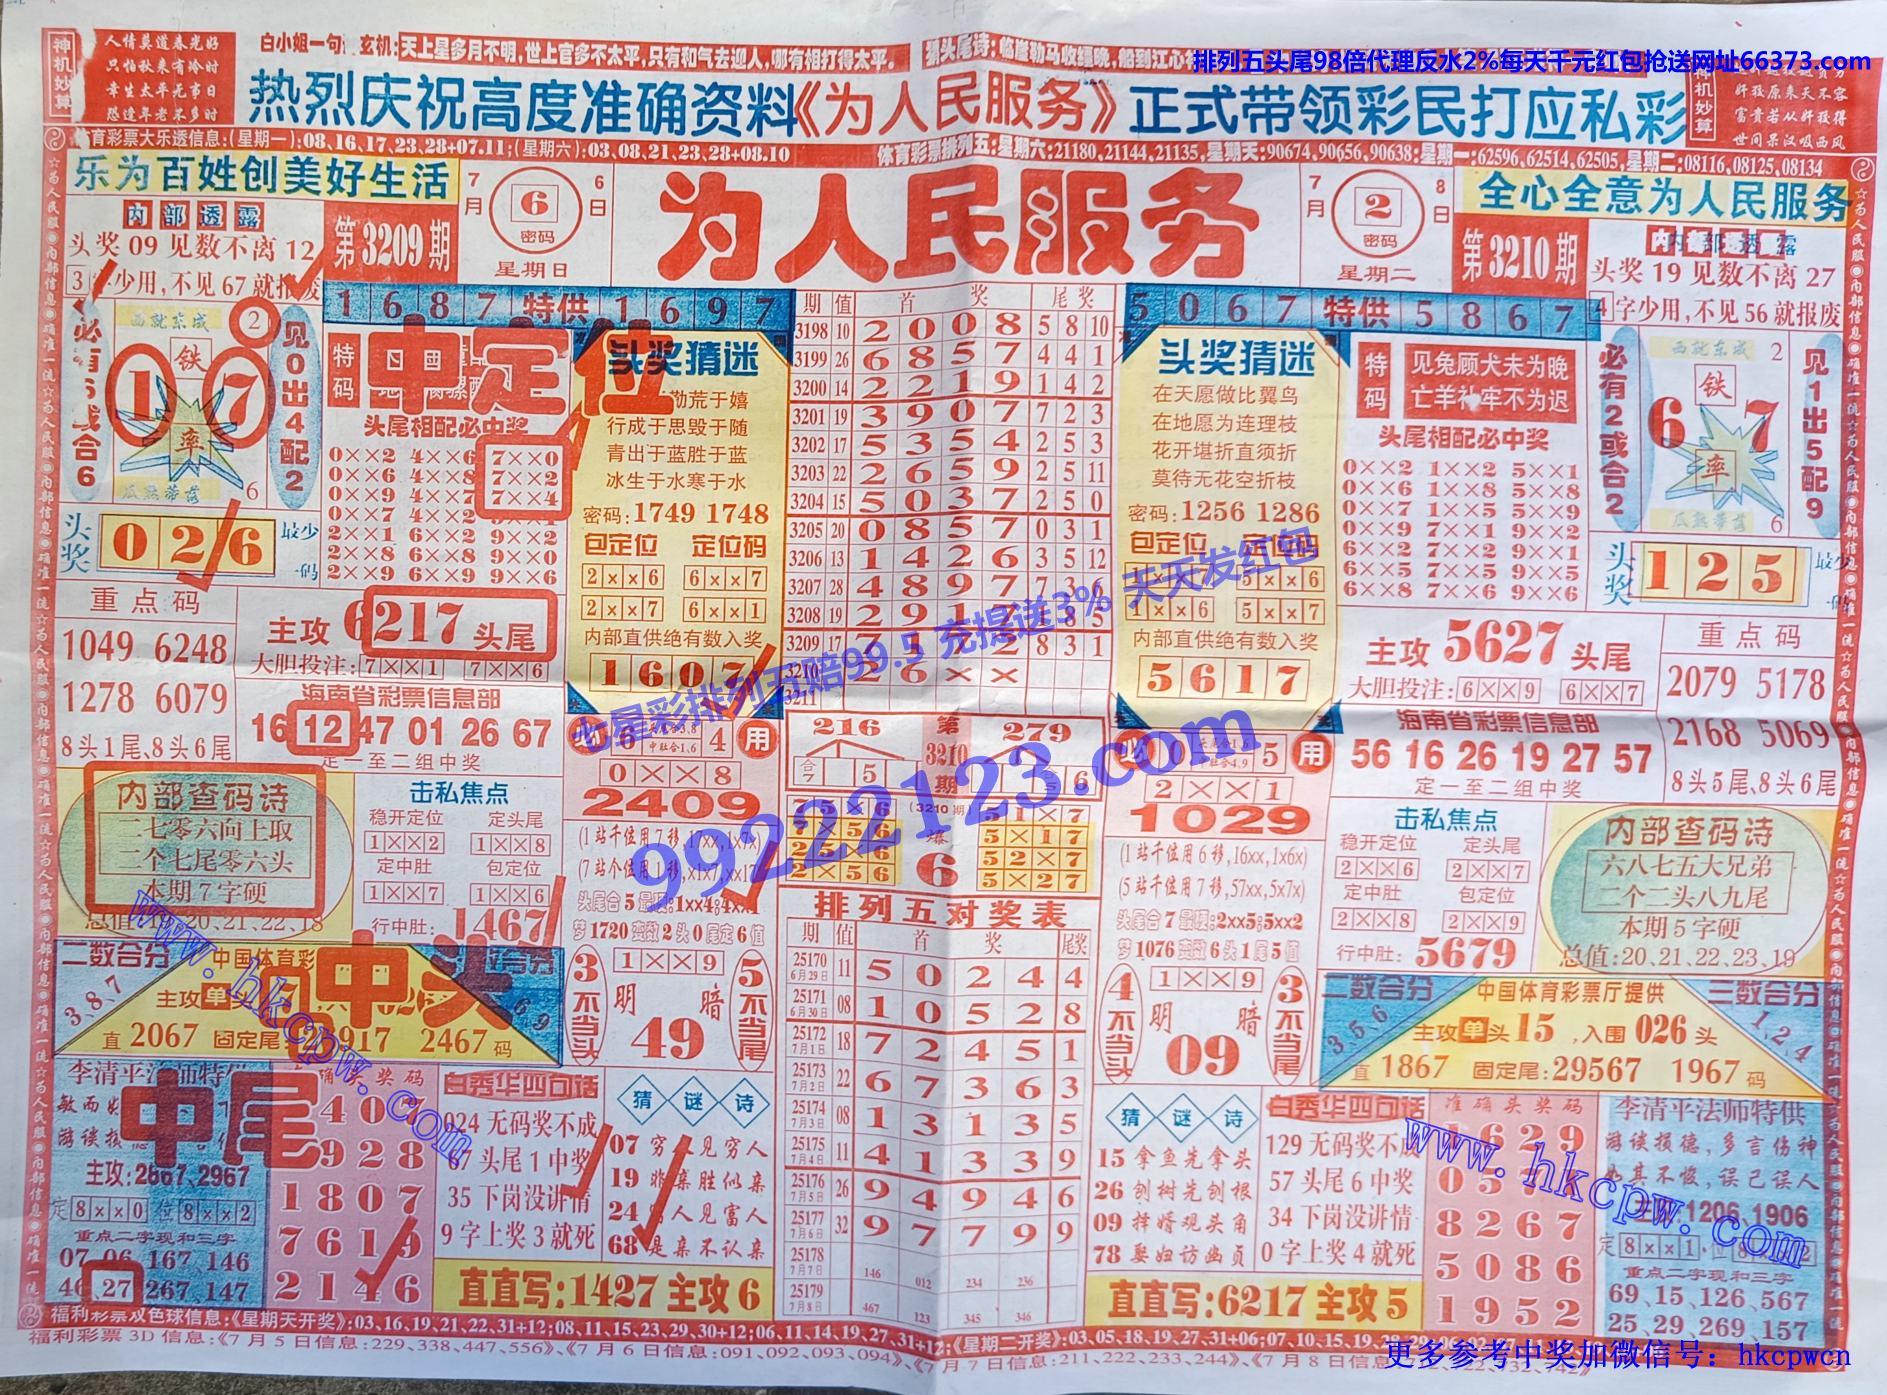 神机妙算
人情莫道春光好
只怕秋来有冷时
幸生太平无事日
恐逢年老不多时
白小姐一句 玄机:天上星多月不明,世上官多不太平,只有和气去迎人,哪有相打得太平。
猜头尾诗:临崖勒马收缰晚,船到江心
排列五头尾98倍代理反水2%每天千元红包抢送网址66373.com
热烈庆祝高度准确资料《为人民服务》正式带领彩民打应私彩
神机妙算
奸狡原来天不容
富贵若从奸狡得
世间呆汉吸西风
体育彩票大乐透信息:(星期一):08,16,17,23,28+07.11;(星期六):03,08,21,23,28+08.10
体育彩票排列五:星期六:21180,21144,21135,星期天:90674,90656,90638:星期一:62596,62514,62505,星期二:08116,08125,08134
乐为百姓创美好生活
7月 6日
6
密码
星期日
为人民服务
7月 8日
2
密码
星期二
全心全意为人民服务
内部透露
头奖 09 见数不离 12
3字少用,不见 67 就报废
第3209期
第3210期
内部透露
头奖 19 见数不离 27
4字少用,不见 56 就报废
1 6 8 7 特供 1 6 9 7
必有6或合6
西就东成
2
铁
1 7
率
瓜熟蒂落
6
见0出4配2
头奖
0 2 6
最少一码
特码
中定位
头尾相配必中奖
0××2 4××6 7××0
0××6 4××8 7××2
0××9 4××7 7××4
0××7 4××2
2××1 6××2 9××2
2××8 6××8 9××6
2××9 6××9 9××0
头奖猜迷
勤荒于嬉
行成于思毁于随
青出于蓝胜于蓝
冰生于水寒于水
密码:1749 1748
包定位 定位码
2××6 6××7
2××7 6××1
内部直供绝有数入奖
1 6 0 7
期 值 首 奖 尾 奖
3198 10 2 0 0 8 5 8 10
3199 26 6 8 5 7 4 4 1
3200 14 2 2 1 9 1 4 2
3201 19 3 9 0 7 7 2 3
3202 17 5 3 5 4 2 5 3
3203 22 2 6 5 9 2 5 11
3204 15 5 0 3 7 2 5 0
3205 20 0 8 5 7 0 3 1
3206 13 1 4 2 6 3 5 12
3207 28 4 8 9 7 7 3 6
3208 19 2 9 1 7 1 8 5
3209 17 7 1 7 2 8 3 1
3210 2 6 × ×
3211
5 0 6 7 特供 5 8 6 7
头奖猜迷
在天愿做比翼鸟
在地愿为连理枝
花开堪折直须折
莫待无花空折枝
密码:1256 1286
包定位 定位码
1××7 5××6
1××6 5××7
内部直供绝有数入奖
5 6 1 7
特码
见兔顾犬未为晚
亡羊补牢不为迟
头尾相配必中奖
0××2 1××2 5××1
0××6 1××8 5××8
0××7 1××5 5××9
0××9 7××1 9××2
6××2 7××2 9××1
6××5 7××5 9××5
6××8 7××6 9××6
必有2或合2
西就东成
2
铁
6 7
率
瓜熟蒂落
6
见1出5配9
头奖
1 2 5
最少一码
重点码
1049 6248
1278 6079
8头1尾、8头6尾
主攻 6217 头尾
大胆投注:7××1 7××6
海南省彩票信息部
16 12 47 01 26 67
定一至二组中奖
七星彩排列五赔99.5 充提送3% 天天发红包
99222123.com
必 6 4 用
中肚合1,6
0××8
2409
(1站千位用7移,17xx,1x7x)
(7站个位用1移,x1x7,xx17)
头尾合5最硬:1xx4;4xx1
梦1720变数2头0尾定6值
216 第3210期 279
合7
5
6
(3210期)
爆
6
2××6
2×56
5×17
52×7
5×27
必 0 5 用
中肚合4,9
2××1
1029
(1站千位用6移,16xx,1x6x)
(5站千位用7移,57xx,5x7x)
头尾合7最硬:2xx5;5xx2
梦1076变数6头1尾5值
主攻 5627 头尾
大胆投注:6××9 6××7
海南省彩票信息部
56 16 26 19 27 57
定一至二组中奖
重点码
2079 5178
2168 5069
8头5尾、8头6尾
内部查码诗
二七零六向上取
二个七尾零六头
本期7字硬
总值:19,20,21,22,18
击私焦点
稳开定位 定头尾
1××2 1××8
定中肚 包定位
1××7 1××6
行中肚: 1467
二数合分
3,8,7
中国体育彩
主攻单
中头
直 2067 固定尾 2467 码
3不当头
1××9
明 暗
49
5不当尾
排列五对奖表
期 值 首 奖 尾奖
25170 6月29日 11 5 0 2 4 4
25171 6月30日 08 1 0 5 2 8
25172 7月1日 18 7 2 4 5 1
25173 7月2日 22 6 7 3 6 3
25174 7月3日 08 1 3 1 3 5
25175 7月4日 11 4 1 3 3 9
25176 7月5日 26 9 4 9 4 6
25177 7月6日 32 9 7 7 9 9
25178 7月7日 146 012 234 236
25179 7月8日 467 123 345 346
4不当头
1××9
明 暗
09
3不当尾
击私焦点
稳开定位 定头尾
2××6 2××7
定中肚 包定位
2××8 2××9
行中肚: 5679
内部查码诗
六八七五大兄弟
二个二头八九尾
本期5字硬
总值:20、21、22、23、19
二数合分
3,5,6
中国体育彩票厅提供
主攻单头15,入围026头
三数合分
1,2,4
直 1867 固定尾:29567 1967 码
李清平法师特供
中尾
主攻:2867、2967
定8××0位8××2
重点二字现和三字
07、06、167、146
46、27、267、147
准确头奖码
4 0 7
9 2 8
1 8 0 7
7 6 1 9
2 1 4 6
白秀华四句话
024 无码奖不成
67 头尾 1 中奖
35 下岗没讲情
9 字上奖 3 就死
猜谜诗
07 穷人见穷人
19 非亲胜似亲
24 富人见富人
68 是亲不认亲
直直写:1427 主攻 6
猜谜诗
15 拿鱼先拿头
26 刨树先刨根
09 择婚观头角
78 娶妇访幽贞
白秀华四句话
129 无码奖不成
57 头尾 6 中奖
34 下岗没讲情
0 字上奖 4 就死
直直写:6217 主攻 5
准确头奖码
1 6 2 9
0 5 7
8 2 6 7
5 0 8 6
1 9 5 2
李清平法师特供
游谈损德,多言伤神
如其不悛,误己误人
主攻:1206、1906
定8××1位
重点二字现和三字
69、15、126、567
25、29、269、157
www.hkcpw.com
www.hkcpw.com
福利彩票双色球信息:《星期天开奖》;03,16,19,21,22,31+12;08,11,15,23,29,30+12;06,11,14,19,27,31+12;《星期二开奖》;03,05,18,19,27,31+06;07,10,15,19,28,29
福利彩票3D信息:《7月5日信息:229、338、447、556》、《7月6日信息:091、092、093、094》、《7月7日信息:211、222、233、244》、《7月8日信息:
更多参考中奖加微信号: hkcpwcn